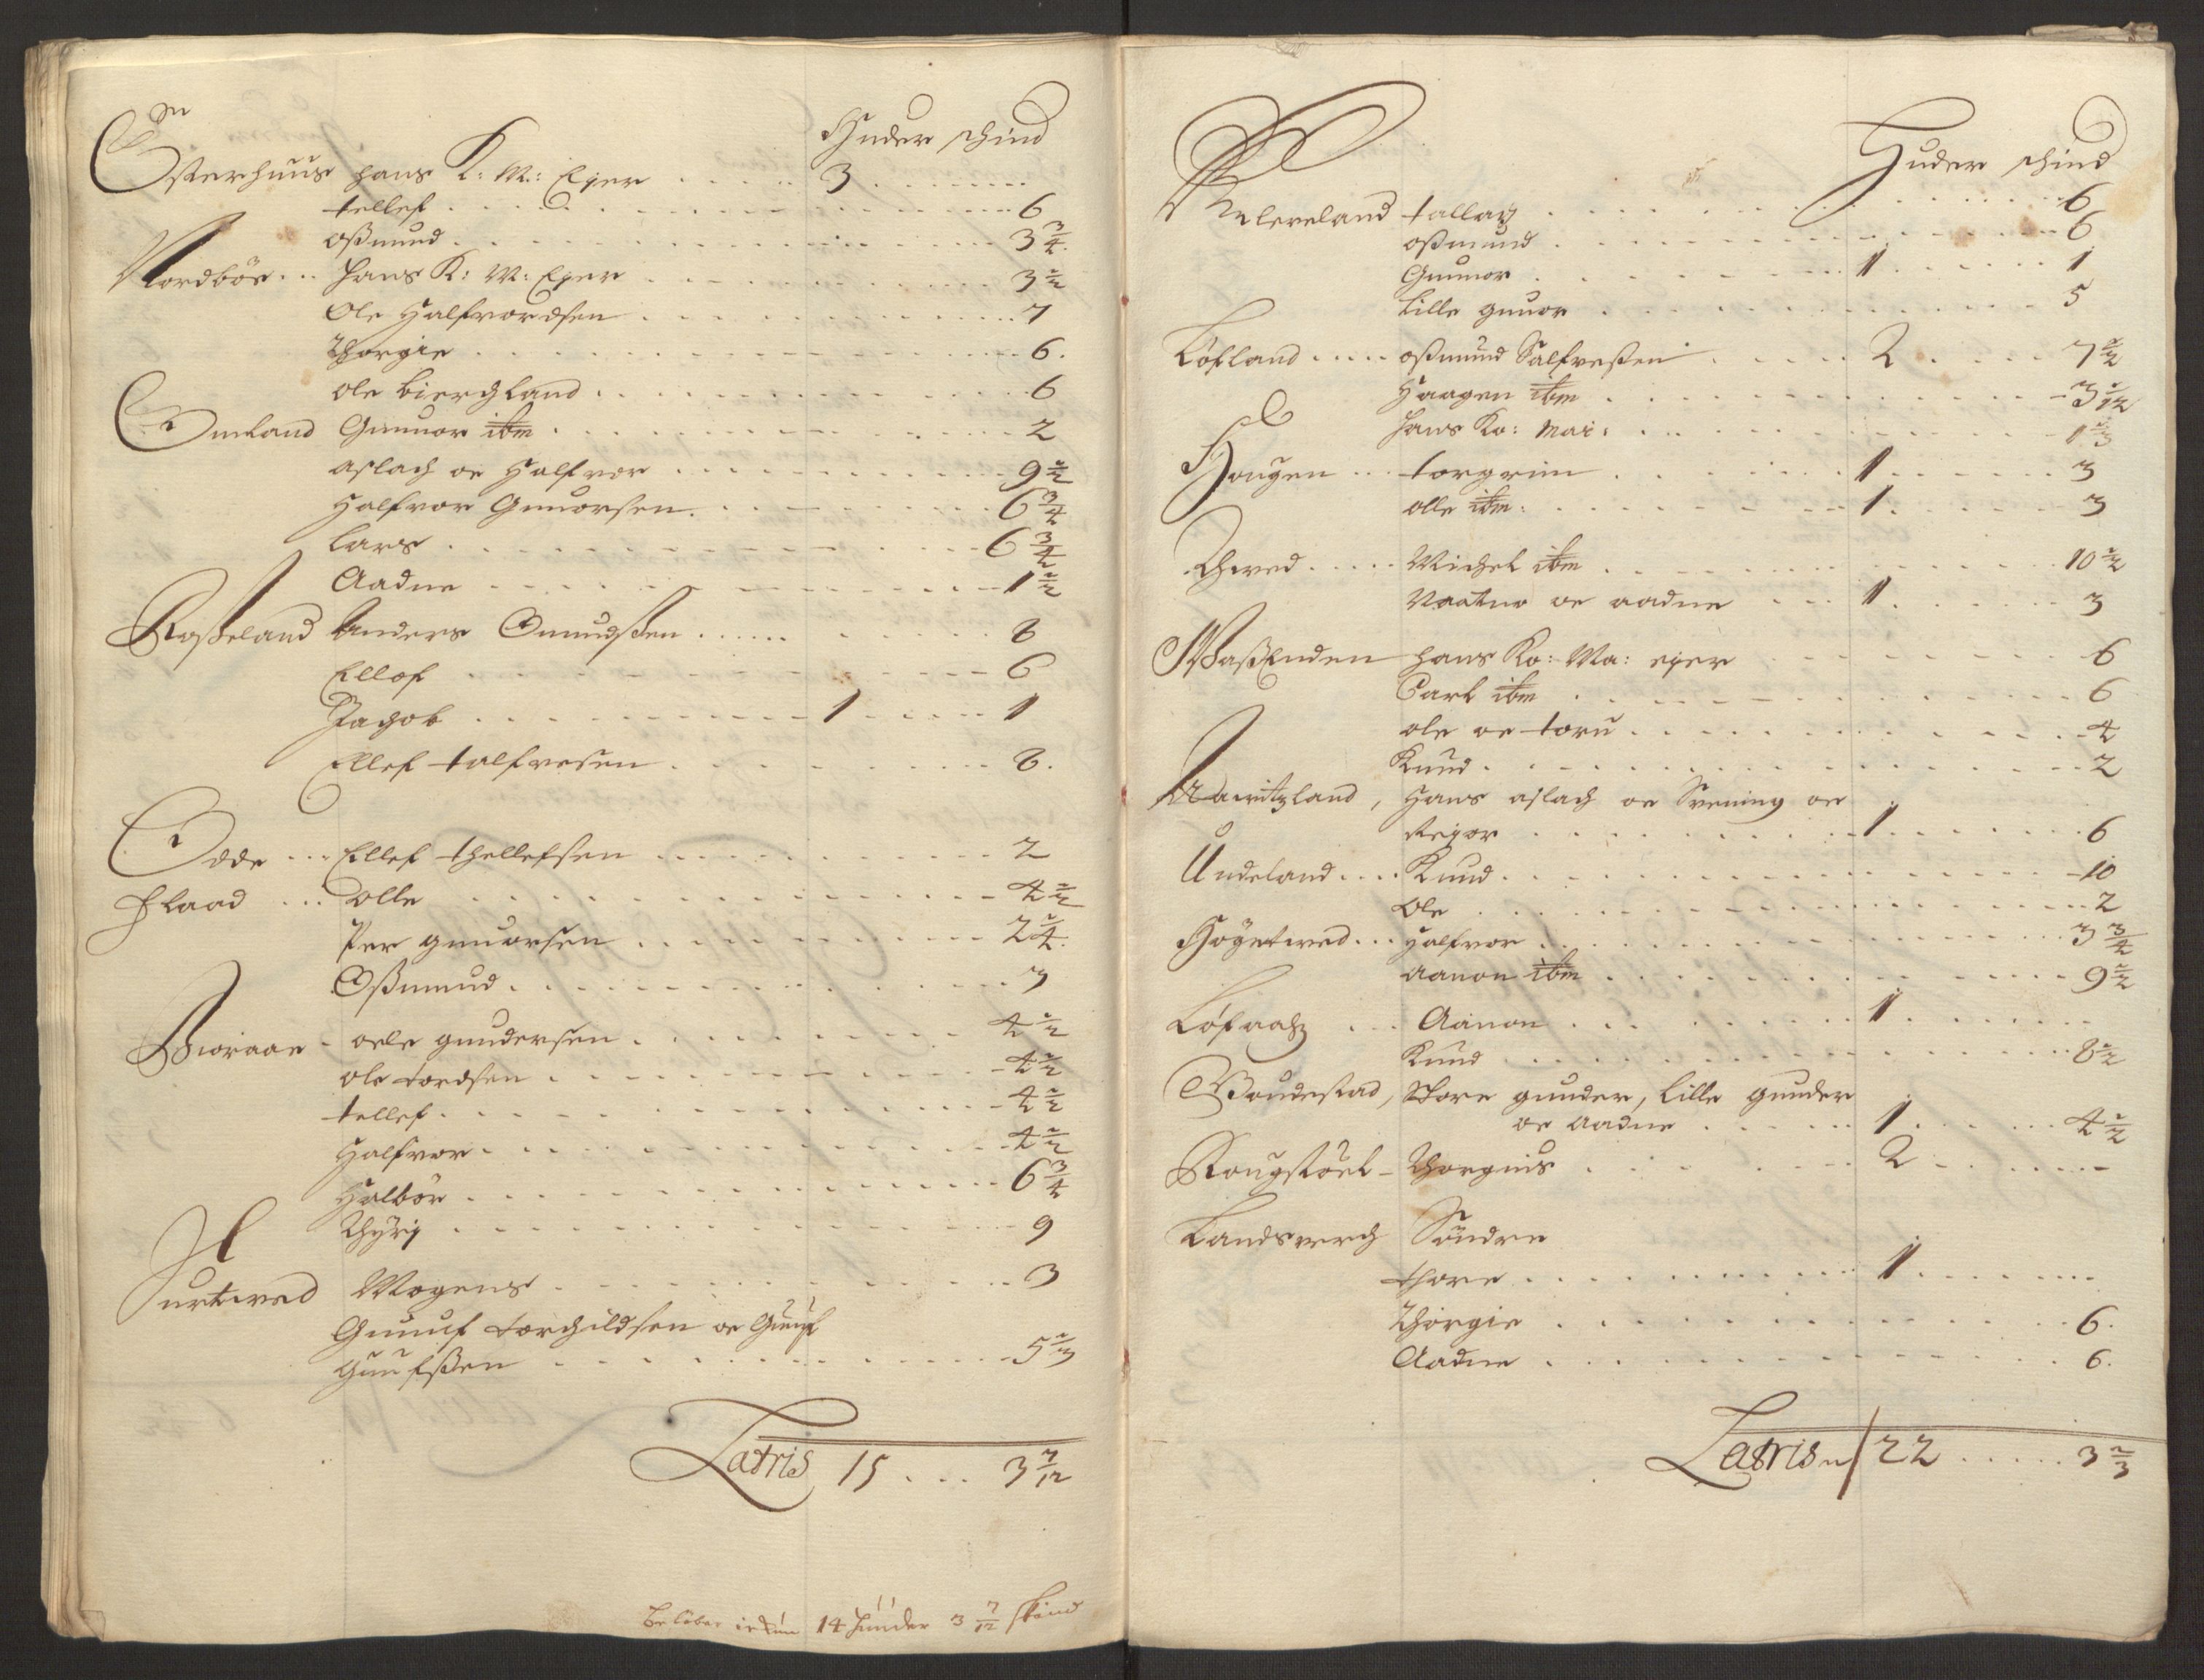 Huder schind
Østerhuus hans K: M: Eger . . . 3 . . .
tellef . . . 6
oßmund . . . 3 3/4
Nordböe . . . hans K: M: Eger . . . 3 1/2
Ole Halfvordsen . . . 7
Thorgie . . . 6
ole biergland . . . 6
Omland Gunnor ibm . . . 2
aslach oc Halfvor . . . 9 1/2
Halfvor Gunorsen . . . 6 3/4
Lars . . . 6 3/4
Aadne . . . 1 1/2
Roßeland Anders Omudßen . . . 8
Ellof . . . 6
Jachob . . . 1 . . . 1
Ellef talfvesen . . . 8
Odde . . . Ellef thellefsen . . . 2
Flaad . . . olle . . . 4 1/2
Per gunorsen . . . 2 1/4
Oßmund . . . 3
Bioraae - oele gundersen . . . 4 1/2
ole tordsen . . . 4 1/2
tellef . . . 4 1/2
Halfvor . . . 4 1/2
Halbör . . . 6 3/4
Thÿrij . . . 9
Hurtved Mogens . . . 3
Gunuf torchildsen oc Gunuf
Gunufßen . . . 5 1/3
Latris 15 . . . 3 7/12
beløber ickun 14 huuder 3 7/12 skind
Huder schind
Kleveland tallag . . . 6
oßmund . . . 6
Gunnor . . . 1 . . . 1
Lille gunor . . . 5
Löfland . . . oßmund Salfveßen . . . 2 . . . 7 1/2
Haagen ibm . . . 3 1/12
hans Ko: Mai: . . . 1 1/3
Hougen . . . torgrim . . . 1 . . . 3
olle ibm . . . 1 . . . 3
Thved . . . Michel ibm . . . 10 1/2
Vaatne oc aadne . . . 1 . . . 3
Waßenden hans Ko: Ma: eger . . . 6
Carl ibm . . . 6
ole oc toru . . . 4
Knud . . . 2
Nauritzland, Hans aslach oc Svening oc
Reior . . . 1 . . . 6
Undeland . . . Knud . . . 10
Ole . . . 2
Högetved . . . Halfvor . . . 3 3/4
aanon ibm . . . 9 1/2
Löfaas . . . Aanon . . . 1 . . .
Knud . . . 8 1/2
Boudestad, Store gunder, Lille gunder
oc aadne . . . 1 . . . 4 1/2
Rougstöel - Thorgius . . . 2 . . .
Landsverch Söndre
thore . . . 1 . . .
Thorgie . . . 6
Aadne . . . 6
Latris 22 . . . 3 2/3